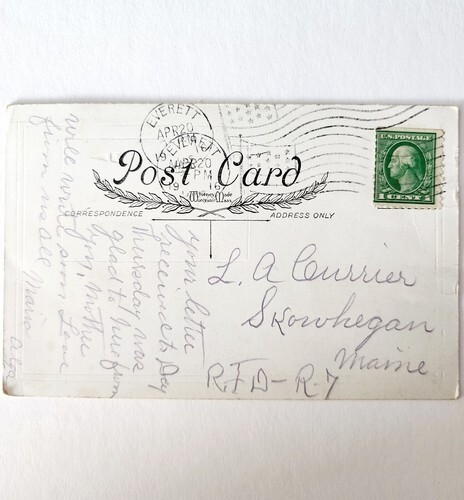 EVERETT
APR 20
19
EVERETT
APR 20
PM
1916
U.S. POSTAGE
1 CENT 1
Post Card
Whitney Made
Worcester Mass
CORRESPONDENCE
ADDRESS ONLY
your letter
received to Day
Thursday was
glad to hure from
you, Mother
will write soon Love
from us all Maria
L. A Currier
Skowhegan
Maine
R.F.D- R-7